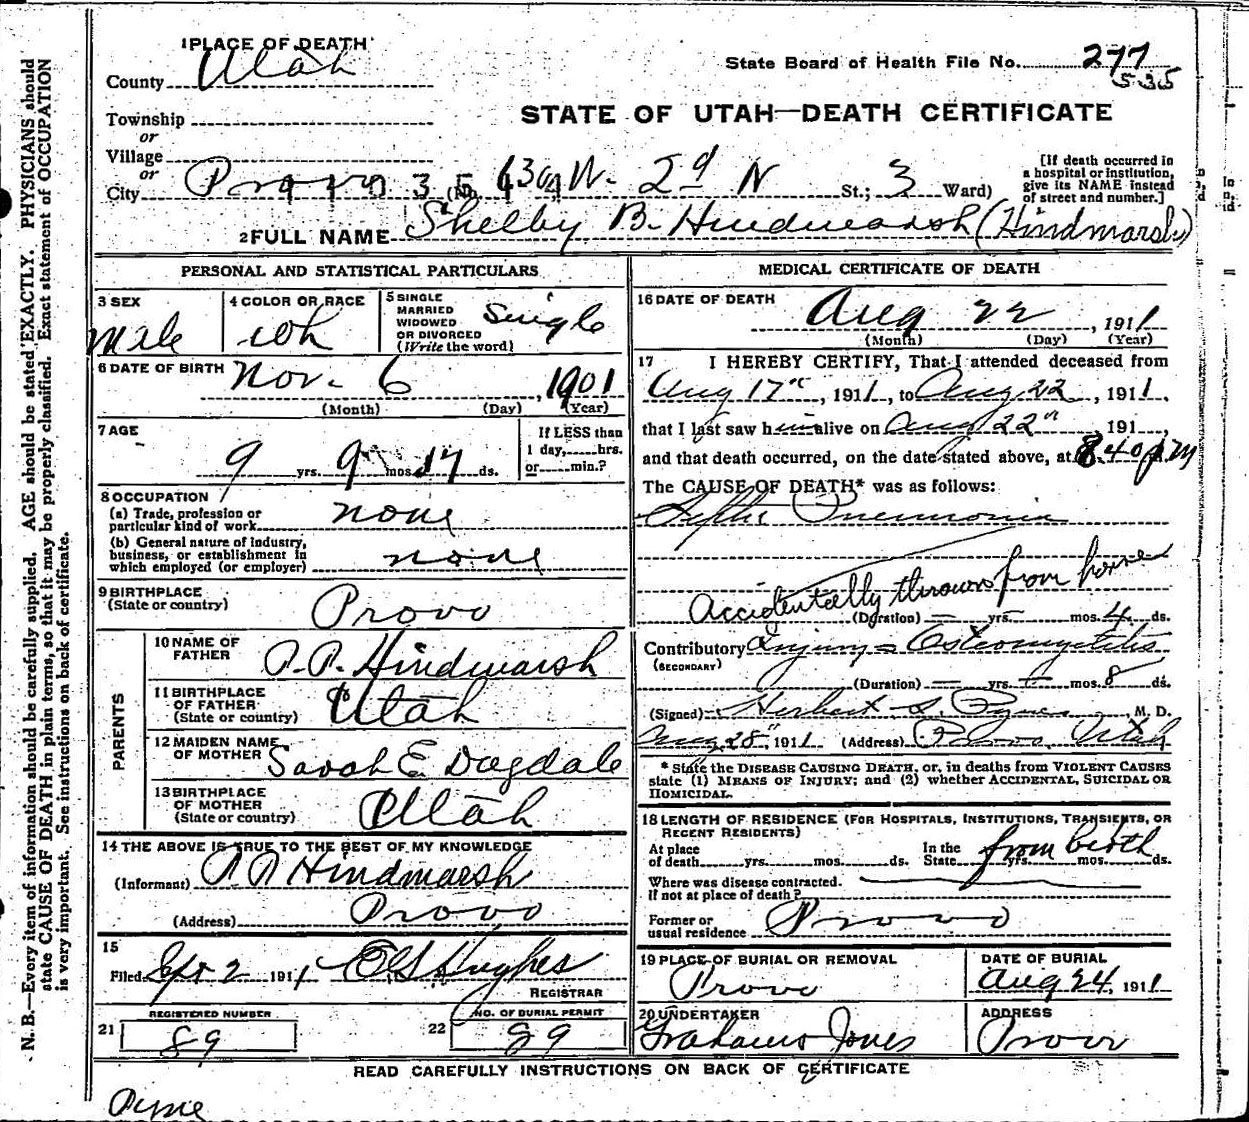 1 PLACE OF DEATH
County Utah
State Board of Health File No. 277
535
Township
STATE OF UTAH—DEATH CERTIFICATE
or
Village
or
City Provo (No. W. 2d N St.; 3 Ward)
[If death occurred in a hospital or institution, give its NAME instead of street and number.]
2 FULL NAME Shelby B. Hindwarsh (Hindmarsh)
PERSONAL AND STATISTICAL PARTICULARS
3 SEX
Male
4 COLOR OR RACE
wh
5 SINGLE MARRIED WIDOWED OR DIVORCED (Write the word)
Single
6 DATE OF BIRTH Nov. 6, 1901
(Month) (Day) (Year)
7 AGE
9 yrs. 9 mos. 17 ds.
If LESS than 1 day, hrs. or min.?
8 OCCUPATION
(a) Trade, profession or particular kind of work none
(b) General nature of industry, business, or establishment in which employed (or employer) none
9 BIRTHPLACE
(State or country) Provo
PARENTS
10 NAME OF FATHER P. P. Hindwarsh
11 BIRTHPLACE OF FATHER (State or country) Utah
12 MAIDEN NAME OF MOTHER Sarah E Dugdale
13 BIRTHPLACE OF MOTHER (State or country) Utah
14 THE ABOVE IS TRUE TO THE BEST OF MY KNOWLEDGE
(Informant) Hindmarsh
(Address) Provo
15
Filed Sept 2 1911 Hughes
REGISTRAR
21 REGISTERED NUMBER
89
22 NO. OF BURIAL PERMIT
89
MEDICAL CERTIFICATE OF DEATH
16 DATE OF DEATH
Aug 22, 1911
(Month) (Day) (Year)
17 I HEREBY CERTIFY, That I attended deceased from
Aug 17", 1911, to Aug 22, 1911.
that I last saw him alive on Aug 22", 191 ,
and that death occurred, on the date stated above, at 8.40 pm
The CAUSE OF DEATH* was as follows:
Septic Pneumonia
Accidentally thrown from horse
(Duration) — yrs. — mos. 4 ds.
Contributory Injury = Osteomyelitis
(SECONDARY)
(Duration) — yrs. — mos. 8 ds.
(Signed) Herbert S. Pyne M. D.
Aug 28", 1911 (Address) Provo, Utah
* State the DISEASE CAUSING DEATH, or, in deaths from VIOLENT CAUSES
state (1) MEANS OF INJURY; and (2) whether ACCIDENTAL, SUICIDAL OR
HOMICIDAL.
18 LENGTH OF RESIDENCE (FOR HOSPITALS, INSTITUTIONS, TRANSIENTS, OR
RECENT RESIDENTS)
At place of death yrs. mos. ds. In the State from birth yrs. mos. ds.
Where was disease contracted.
If not at place of death?
Former or usual residence Provo
19 PLACE OF BURIAL OR REMOVAL
Provo
DATE OF BURIAL
Aug 24, 1911
20 UNDERTAKER
Grahams Jones
ADDRESS
Provo
READ CAREFULLY INSTRUCTIONS ON BACK OF CERTIFICATE
Pyne
N. B.—Every item of information should be carefully supplied. AGE should be stated EXACTLY. PHYSICIANS should
state CAUSE OF DEATH in plain terms, so that it may be properly classified. Exact statement of OCCUPATION
is very important. See instructions on back of certificate.